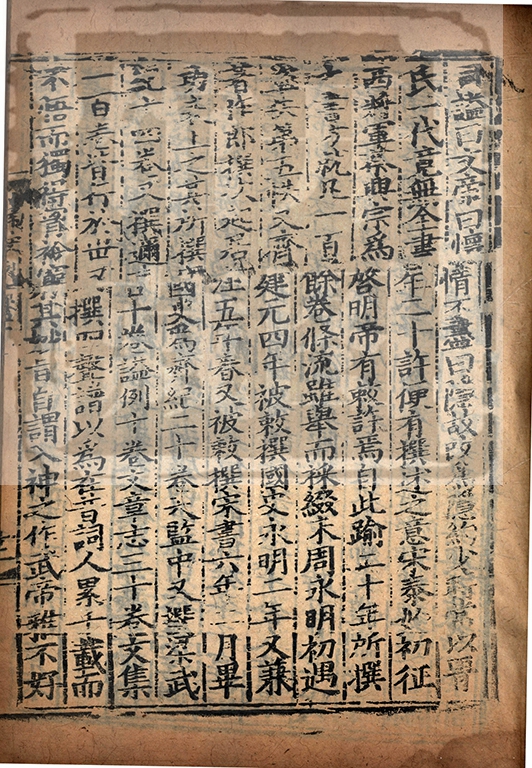 司諡曰文帝曰懷情不盡曰隱故改爲隱約少時常以晉
氏一代竟無全書年二十許便有撰述之意宋泰始初征
西將軍蔡興宗爲啓明帝有敕許焉自此踰二十年所撰
書方就凡一百餘卷條流雖舉而採綴未周永明初遇
第五帙又齊建元四年被敕撰國史永明二年又兼
著作郎撰次起居注五年春又被敕撰宋書六年二月畢
功表上之其所撰國史爲齊紀二十卷天監中又撰梁武
紀十四卷又撰邇言十卷諡例十卷文章志三十卷文集
一百卷皆行於世又撰四聲譜以爲在昔詞人累千載而
不悟而獨得胷衿窮其妙旨自謂入神之作武帝雅不好